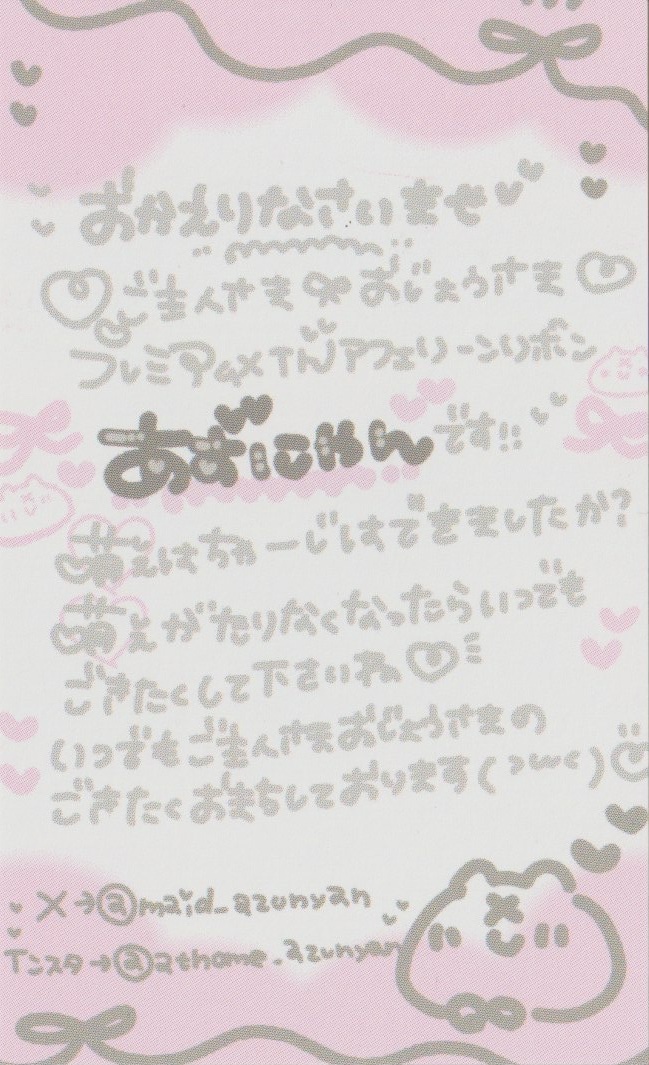 おかえりなさいませ
ご主人さま おじょうさま
プレミアムメイド アフェリーンリボン
あずにゃんです!!
萌えはちゃーじはできましたか?
萌えがたりなくなったらいつでも
ごきたくして下さいね
いつでもご主人さまおじょうさまの
ごきたくおまちしております
X→@maid_azunyan
インスタ→@athome.azunyan